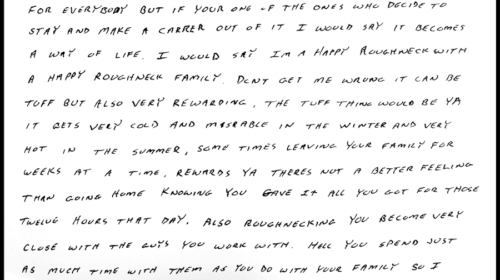 FOR EVERYBODY BUT IF YOUR ONE OF THE ONES WHO DECIDE TO
STAY AND MAKE A CARRER OUT OF IT I WOULD SAY IT BECOMES
A WAY OF LIFE. I WOULD SAY IM A HAPPY ROUGHNECK WITH
A HAPPY ROUGHNECK FAMILY. DONT GET ME WRONG IT CAN BE
TUFF BUT ALSO VERY REWARDING, THE TUFF THING WOULD BE YA
IT GETS VERY COLD AND MISRABLE IN THE WINTER AND VERY
HOT IN THE SUMMER, SOME TIMES LEAVING YOUR FAMILY FOR
WEEKS AT A TIME, REWARDS YA THERES NOT A BETTER FEELING
THAN GOING HOME KNOWING YOU GAVE IT ALL YOU GOT FOR THOSE
TWELVE HOURS THAT DAY. ALSO ROUGHNECKING YOU BECOME VERY
CLOSE WITH THE GUYS YOU WORK WITH. HELL YOU SPEND JUST
AS MUCH TIME WITH THEM AS YOU DO WITH YOUR FAMILY SO I